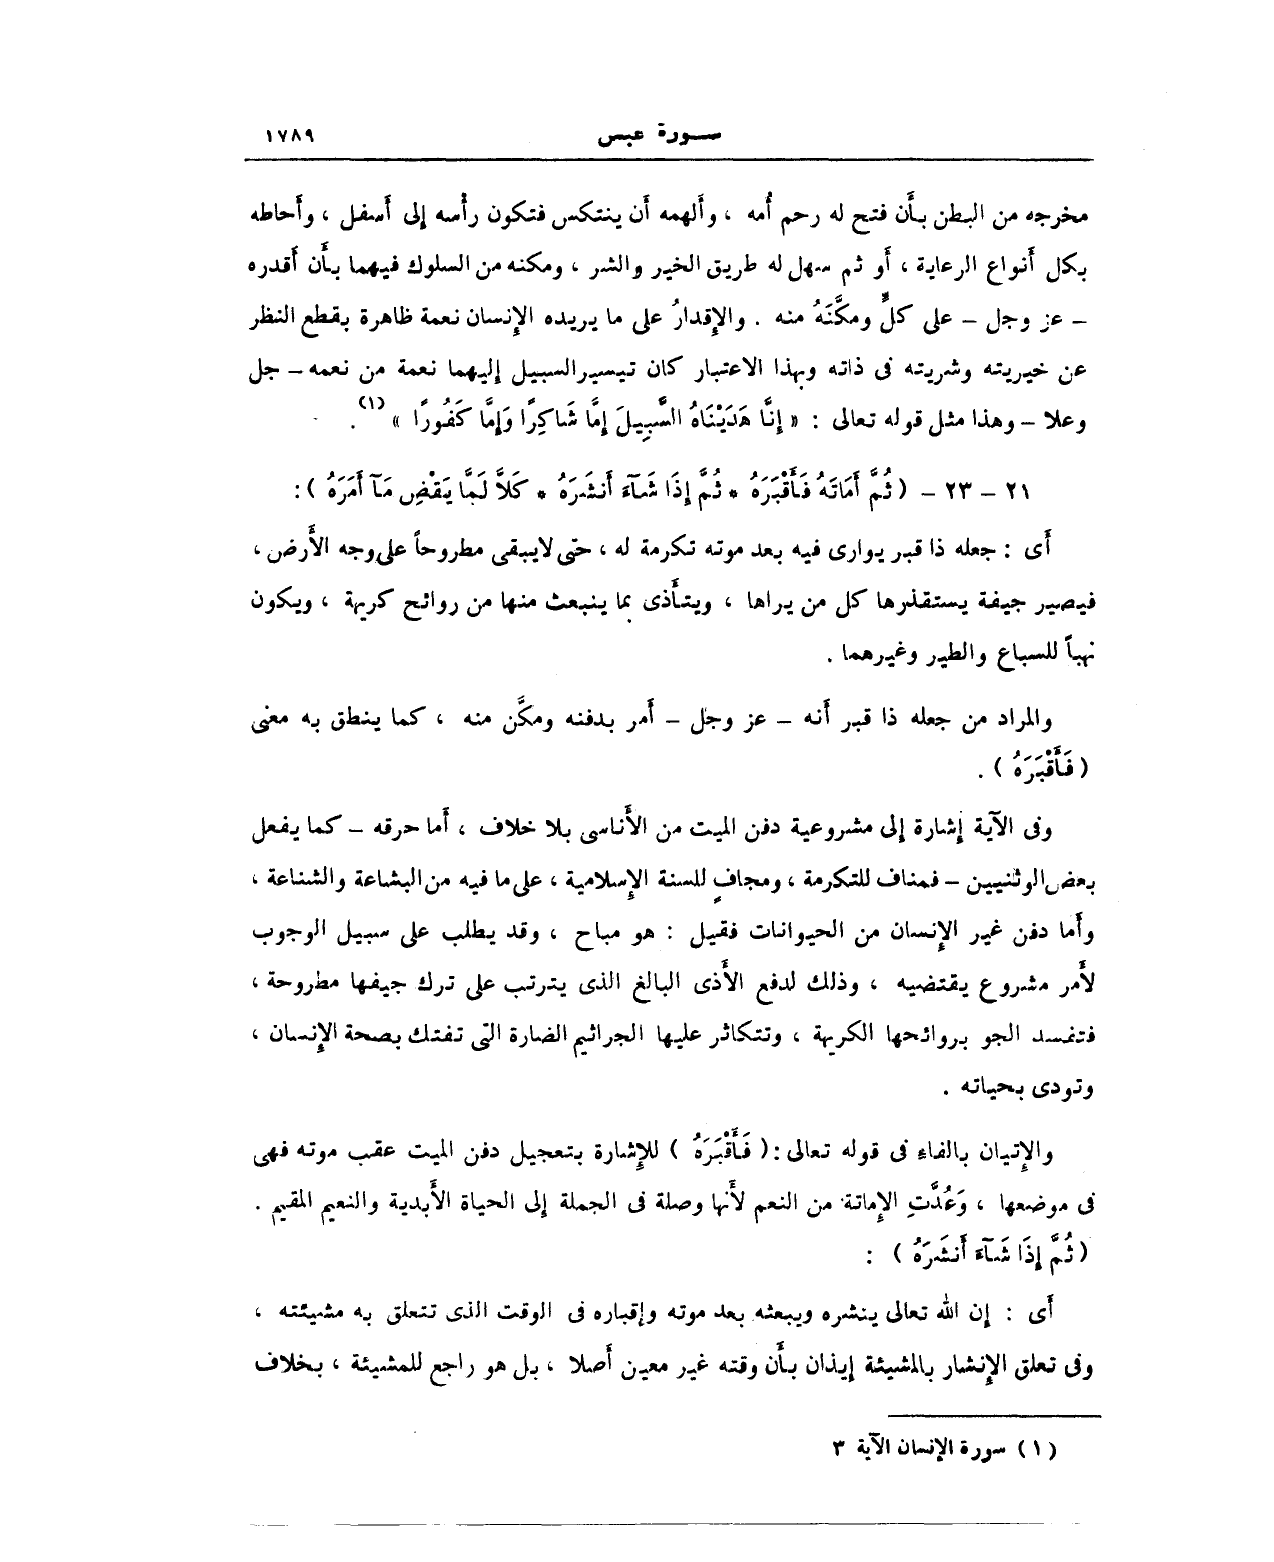 سورة عبس ١٧٨٩
مخرجه من البطن بأن فتح له رحم أُمه ، وألهمه أن ينتكس فتكون رأسه إلى أسفل ، وأحاطه
بكل أنواع الرعاية ، أو ثم سهل له طريق الخير والشر ، ومكنه من السلوك فيهما بأن أقدره
– عز وجل – على كلٍّ ومكَّنَهُ منه . والإقدارُ على ما يريده الإنسان نعمة ظاهرة بقطع النظر
عن خيريته وشريته فى ذاته وبهذا الاعتبار كان تيسير السبيل إليهما نعمة من نعمه – جل
وعلا – وهذا مثل قوله تعالى : « إِنَّا هَدَيْنَاهُ السَّبِيلَ إِمَّا شَاكِرًا وَإِمَّا كَفُورًا » (١) .
٢١ – ٢٣ – ( ثُمَّ أَمَاتَهُ فَأَقْبَرَهُ * ثُمَّ إِذَا شَآءَ أَنشَرَهُ * كَلاَّ لَمَّا يَقْضِ مَآ أَمَرَهُ ) :
أى : جعله ذا قبر يوارى فيه بعد موته تكرمة له ، حتى لايبقى مطروحاً على وجه الأرض ،
فيصير جيفة يستقذرها كل من يراها ، ويتأذى بما ينبعث منها من روائح كريهة ، ويكون
نهباً للسباع والطير وغيرهما .
والمراد من جعله ذا قبر أنه – عز وجل – أمر بدفنه ومكَّن منه ، كما ينطق به معنى
( فَأَقْبَرَهُ ) .
وفى الآية إشارة إلى مشروعية دفن الميت من الأناسى بلا خلاف ، أما حرقه – كما يفعل
بعض الوثنيين – فمناف للتكرمة ، ومجافٍ للسنة الإسلامية ، على ما فيه من البشاعة والشناعة ،
وأما دفن غير الإنسان من الحيوانات فقيل : هو مباح ، وقد يطلب على سبيل الوجوب
لأمر مشروع يقتضيه ، وذلك لدفع الأذى البالغ الذى يترتب على ترك جيفها مطروحة ،
فتفسد الجو بروائحها الكريهة ، وتتكاثر عليها الجراثيم الضارة التى تفتك بصحة الإنسان ،
وتودى بحياته .
والإتيان بالفاء فى قوله تعالى : ( فَأَقْبَرَهُ ) للإشارة بتعجيل دفن الميت عقب موته فهى
فى موضعها ، وَعُدَّتِ الإماتة من النعم لأنها وصلة فى الجملة إلى الحياة الأبدية والنعيم المقيم .
( ثُمَّ إِذَا شَآءَ أَنشَرَهُ ) :
أى : إن الله تعالى ينشره ويبعثه بعد موته وإقباره فى الوقت الذى تتعلق به مشيئته ،
وفى تعلق الإنشار بالمشيئة إيذان بأن وقته غير معين أصلا ، بل هو راجع للمشيئة ، بخلاف
(١) سورة الإنسان الآية ٣